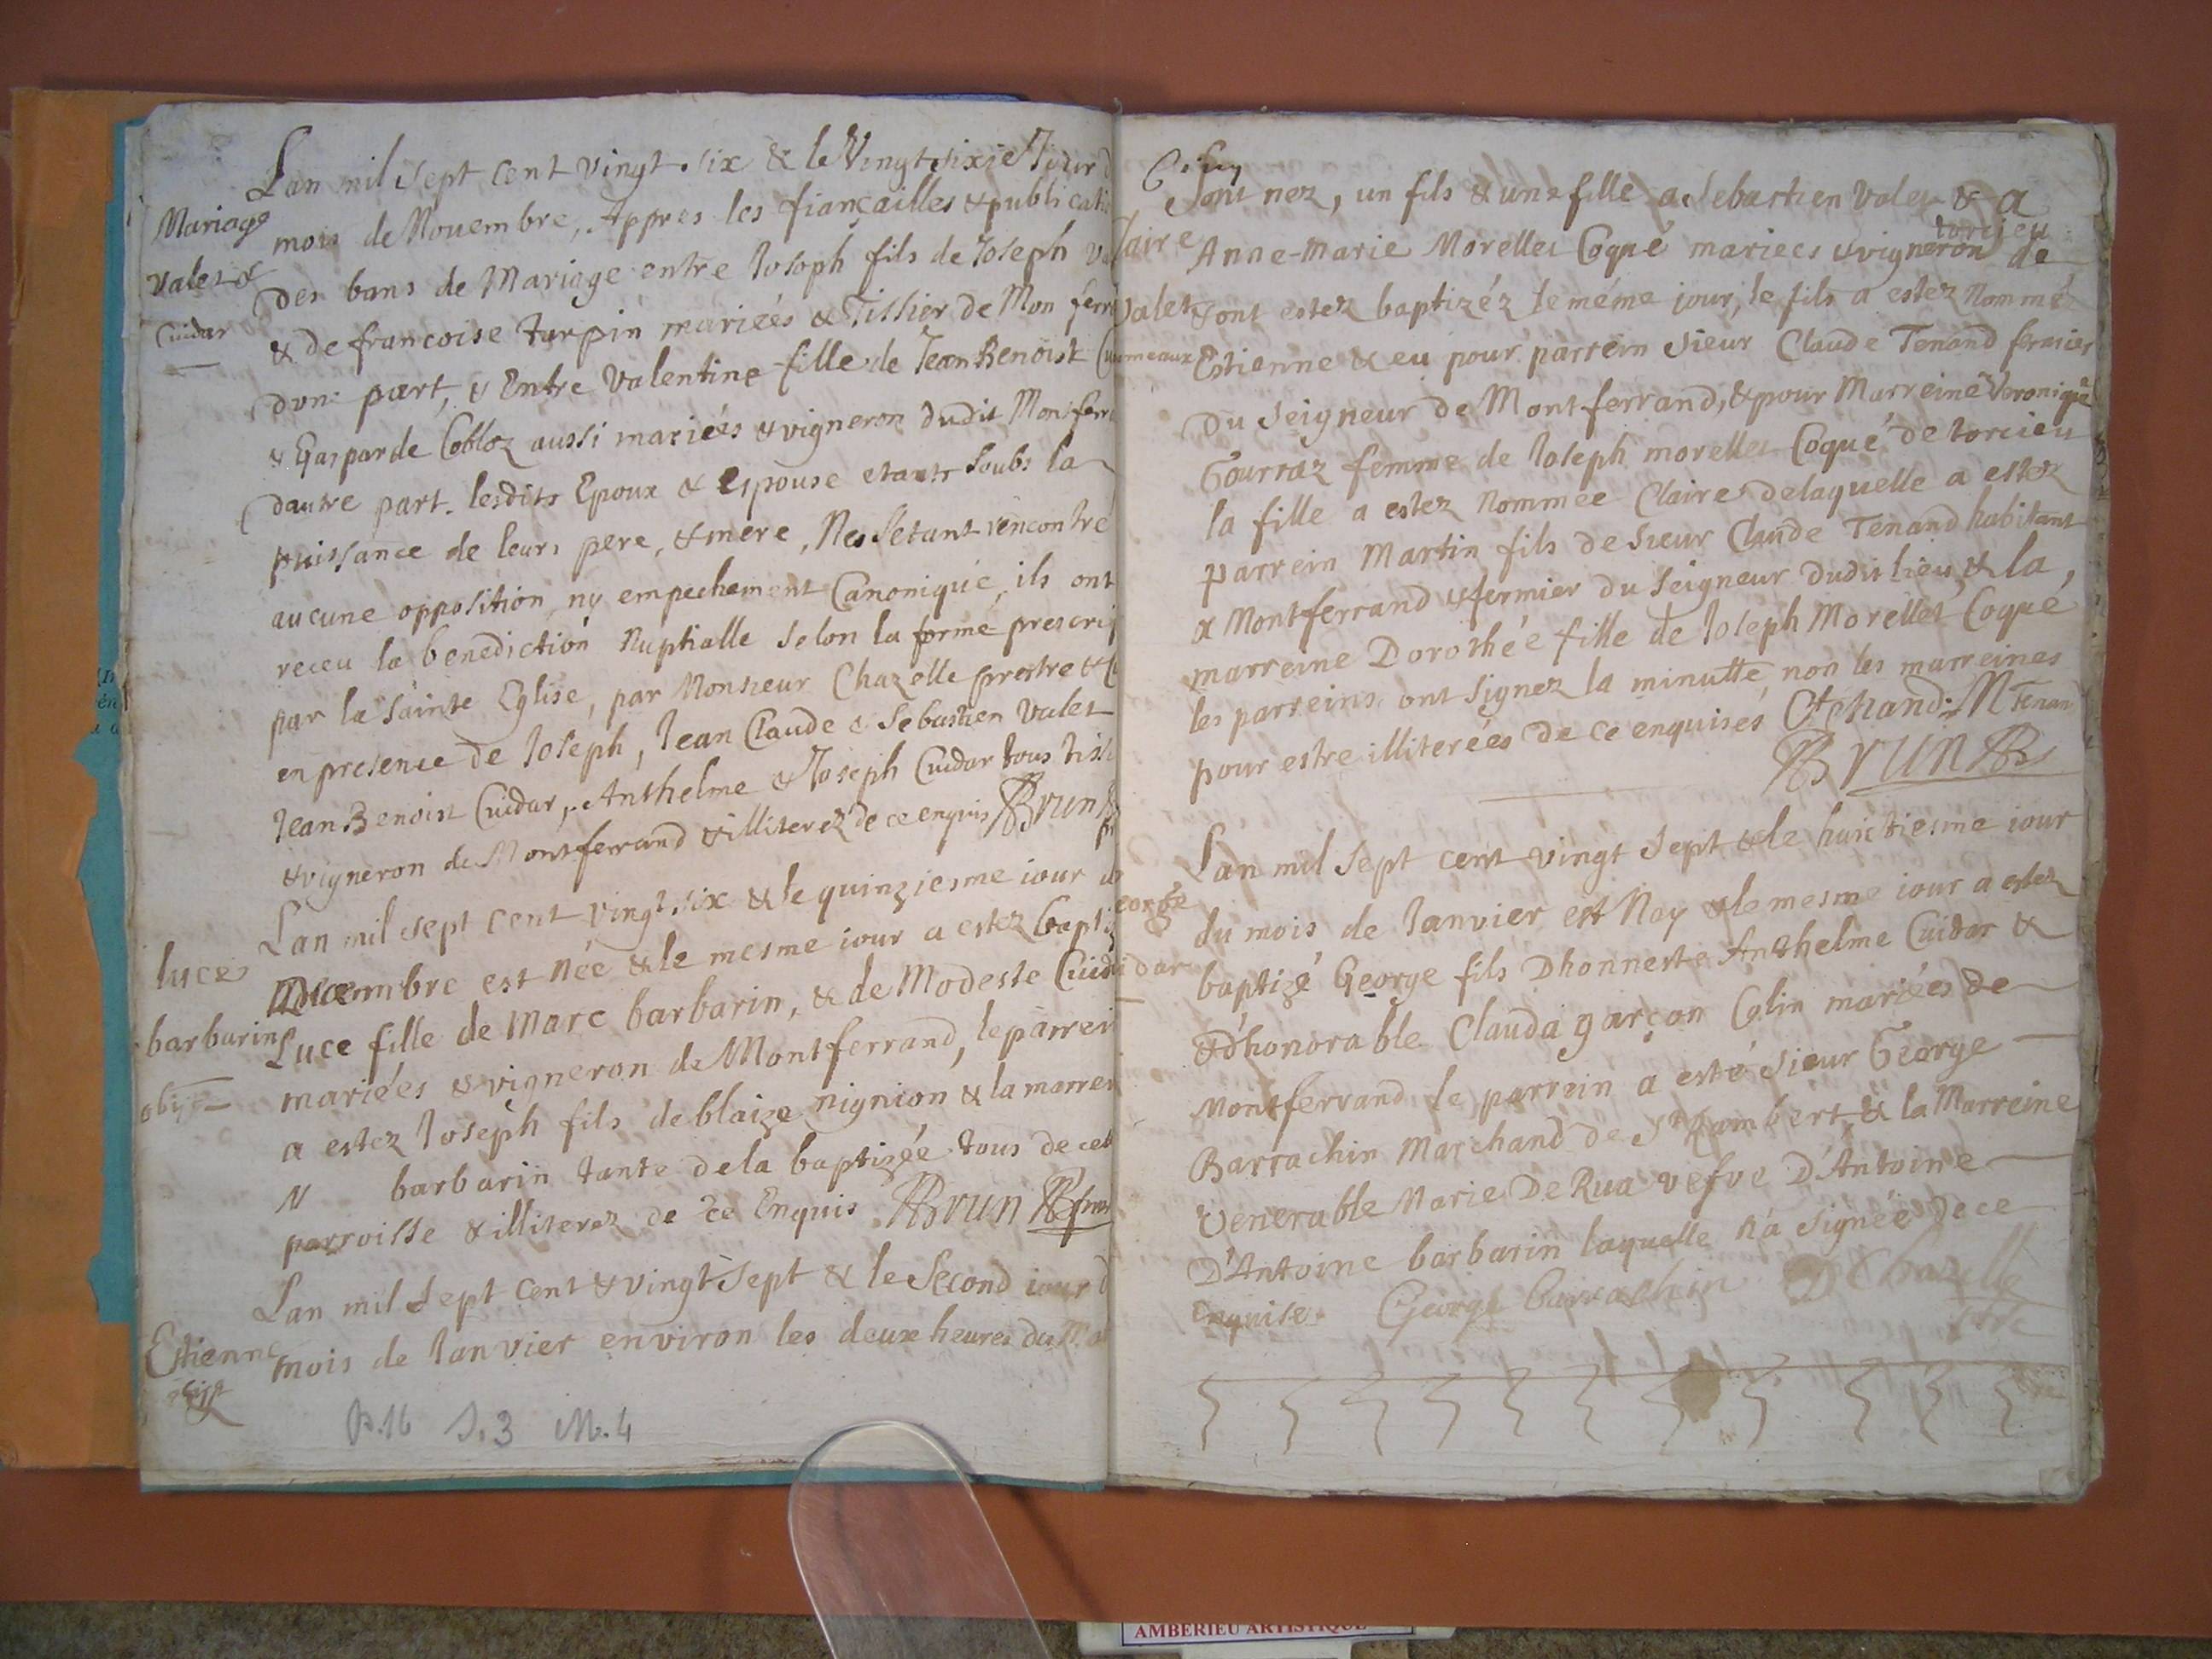 Lan mil sept cent vingt-six & le Vingtsixie Jour d
Mariage
mois de Nouembre, Appres les fiançailles & publicatio
Valet &
des bans de Mariage entre Ioseph fils de Ioseph Va
Cuidar
& de francoise turpin mariées & Tissier de Mon ferr
dvne part, & Entre Valentine fille de Jean Benoist Cu
& Gasparde Cobloz aussi mariées & vigneron dudit Montferr
dautre part. lesdits Epoux & Espouse etants soubs la
puissance de leurs pere, & mere, Ne s setant rencontré
aucune opposition ny empechement Canonique, ils ont
receu la benediction Nuptialle selon la forme prescrip
par la sainte Eglise, par Monsieur Chazelle prestre &
en presence de Ioseph, Jean Claude & Sebastien Valet
Jean Benoist Cuidar, Anthelme & Joseph Cuidar tous tiss
& vigneron de Montferrand & illiterez de ce enquis Brun
Lan mil sept cent vingt six & le quinziesme iour d
luce
Decembre est Née & le mesme iour a estez bapti
barbarin
Luce fille de Marc barbarin, & de Modeste Cuid
mariées & vigneron de Montferrand, le parrei
obijt
a estez Ioseph fils de blaize nignion & la marrei
N barbarin tante dela baptizée tous de cet
parroisse & illiterez de ce Enquis Brun
Lan mil sept cent & vingt sept & le Second iour d
Estienne
mois de Ianvier environ les deux heures du Mat
obijt
P.16 S.3 M.4
Sont nez, un fils & une fille a Sebastien Valet & a
torcieu
laire
Anne-Marie Morellet Coqué mariees & vigneron de
Valet
sont estez baptizéz le méme iour, le fils a estez Nommé
jumeaux
Estienne & eu pour parrein sieur Claude Tenand fermier
Du seigneur de Montferrand, & pour Marreine Veronique
Gourraz femme de Ioseph morellet Coqué de torcieu
la fille a estez Nommée Claire delaquelle a estez
parrein Martin fils de sieur Claude Tenand habitant
a Montferrand & fermier du seigneur dudit lieu & la,
marreine Dorothée fille de Ioseph Morellet Coqué
les parreins ont signez la minutte, non les marreines
pour estre illiterées de ce enquises Ctenand. M Tenan
Brun
Lan mil sept cent vingt sept & le huictiesme iour
eorge
du mois de Ianvier est Nay & le mesme iour a estez
idar
baptizé George fils Dhonneste Anthelme Cuidar &
& d'honorable Clauda garçon Colin mariées de
Montferrand le parrein a esté sieur George
Barrachin Marchand de St Rambert, & la Marreine
Venerable Marie De Rua vefve D'Antoine
D'Antoine barbarin laquelle n'a signée de ce
enquise. George barrachin D Chazelle
ptre
AMBERIEU ARTISTIQUE